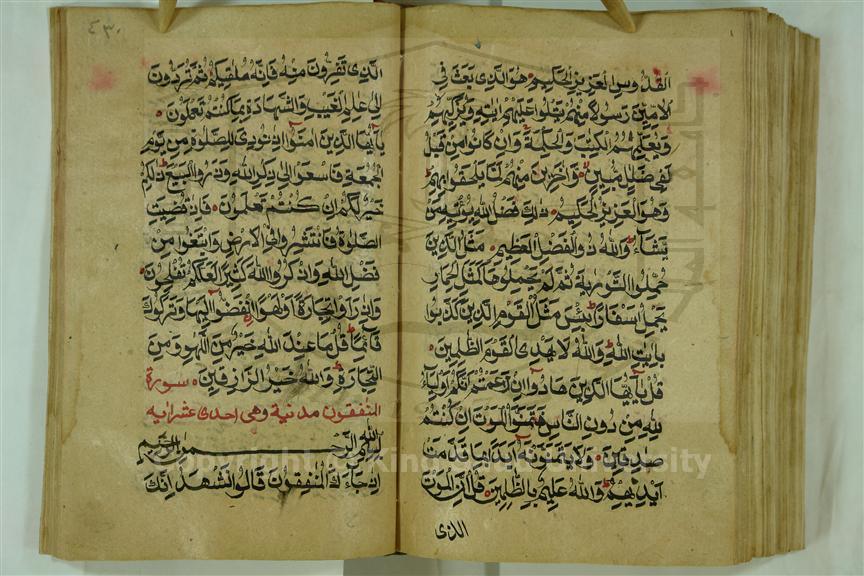 القدوس العزيز الحكيم هو الذي بعث في
الامين رسولا منهم يتلوا عليهم ايته ويزكيهم
ويعلمهم الكتب والحكمة وان كانوا من قبل
لفي ضلل مبين واخرين منهم لما يلحقوا بهم
وهو العزيز الحكيم ذلك فضل الله يؤتيه من
يشاء والله ذو الفضل العظيم مثل الذين
حملوا التورية ثم لم يحملوها كمثل الحمار
يحمل اسفارا بئس مثل القوم الذين كذبوا
بايت الله والله لا يهدي القوم الظلمين
قل يايها الذين هادوا ان زعمتم انكم اولياء
لله من دون الناس فتمنوا الموت ان كنتم
صدقين ولا يتمنونه ابدا بما قدمت
ايديهم والله عليم بالظلمين قل ان الموت
الذي
٤٣٠
الذي تفرون منه فانه ملقيكم ثم تردون
الى علم الغيب والشهادة بما كنتم تعملون
يايها الذين امنوا اذا نودي للصلوة من يوم
الجمعة فاسعوا الى ذكر الله وذروا البيع ذلكم
خير لكم ان كنتم تعلمون فاذا قضيت
الصلوة فانتشروا في الارض وابتغوا من
فضل الله واذكروا الله كثيرا لعلكم تفلحون
واذا راوا تجارة او لهوا انفضوا اليها وتركوك
قائما قل ما عند الله خير من اللهو ومن
التجارة والله خير الرازقين سورة
المنفقون مدنية وهي احدى عشر ايه
بسم الله الرحمن الرحيم
اذا جاءك المنفقون قالوا نشهد انك
Copyright © King Saud University